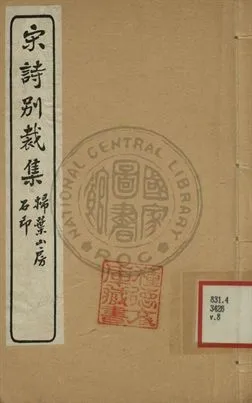 宋詩別裁集
掃葉山房
石印
NATIONAL CENTRAL LIBRARY
R.O.C
國家
圖書
館
831.4
3426
v.8